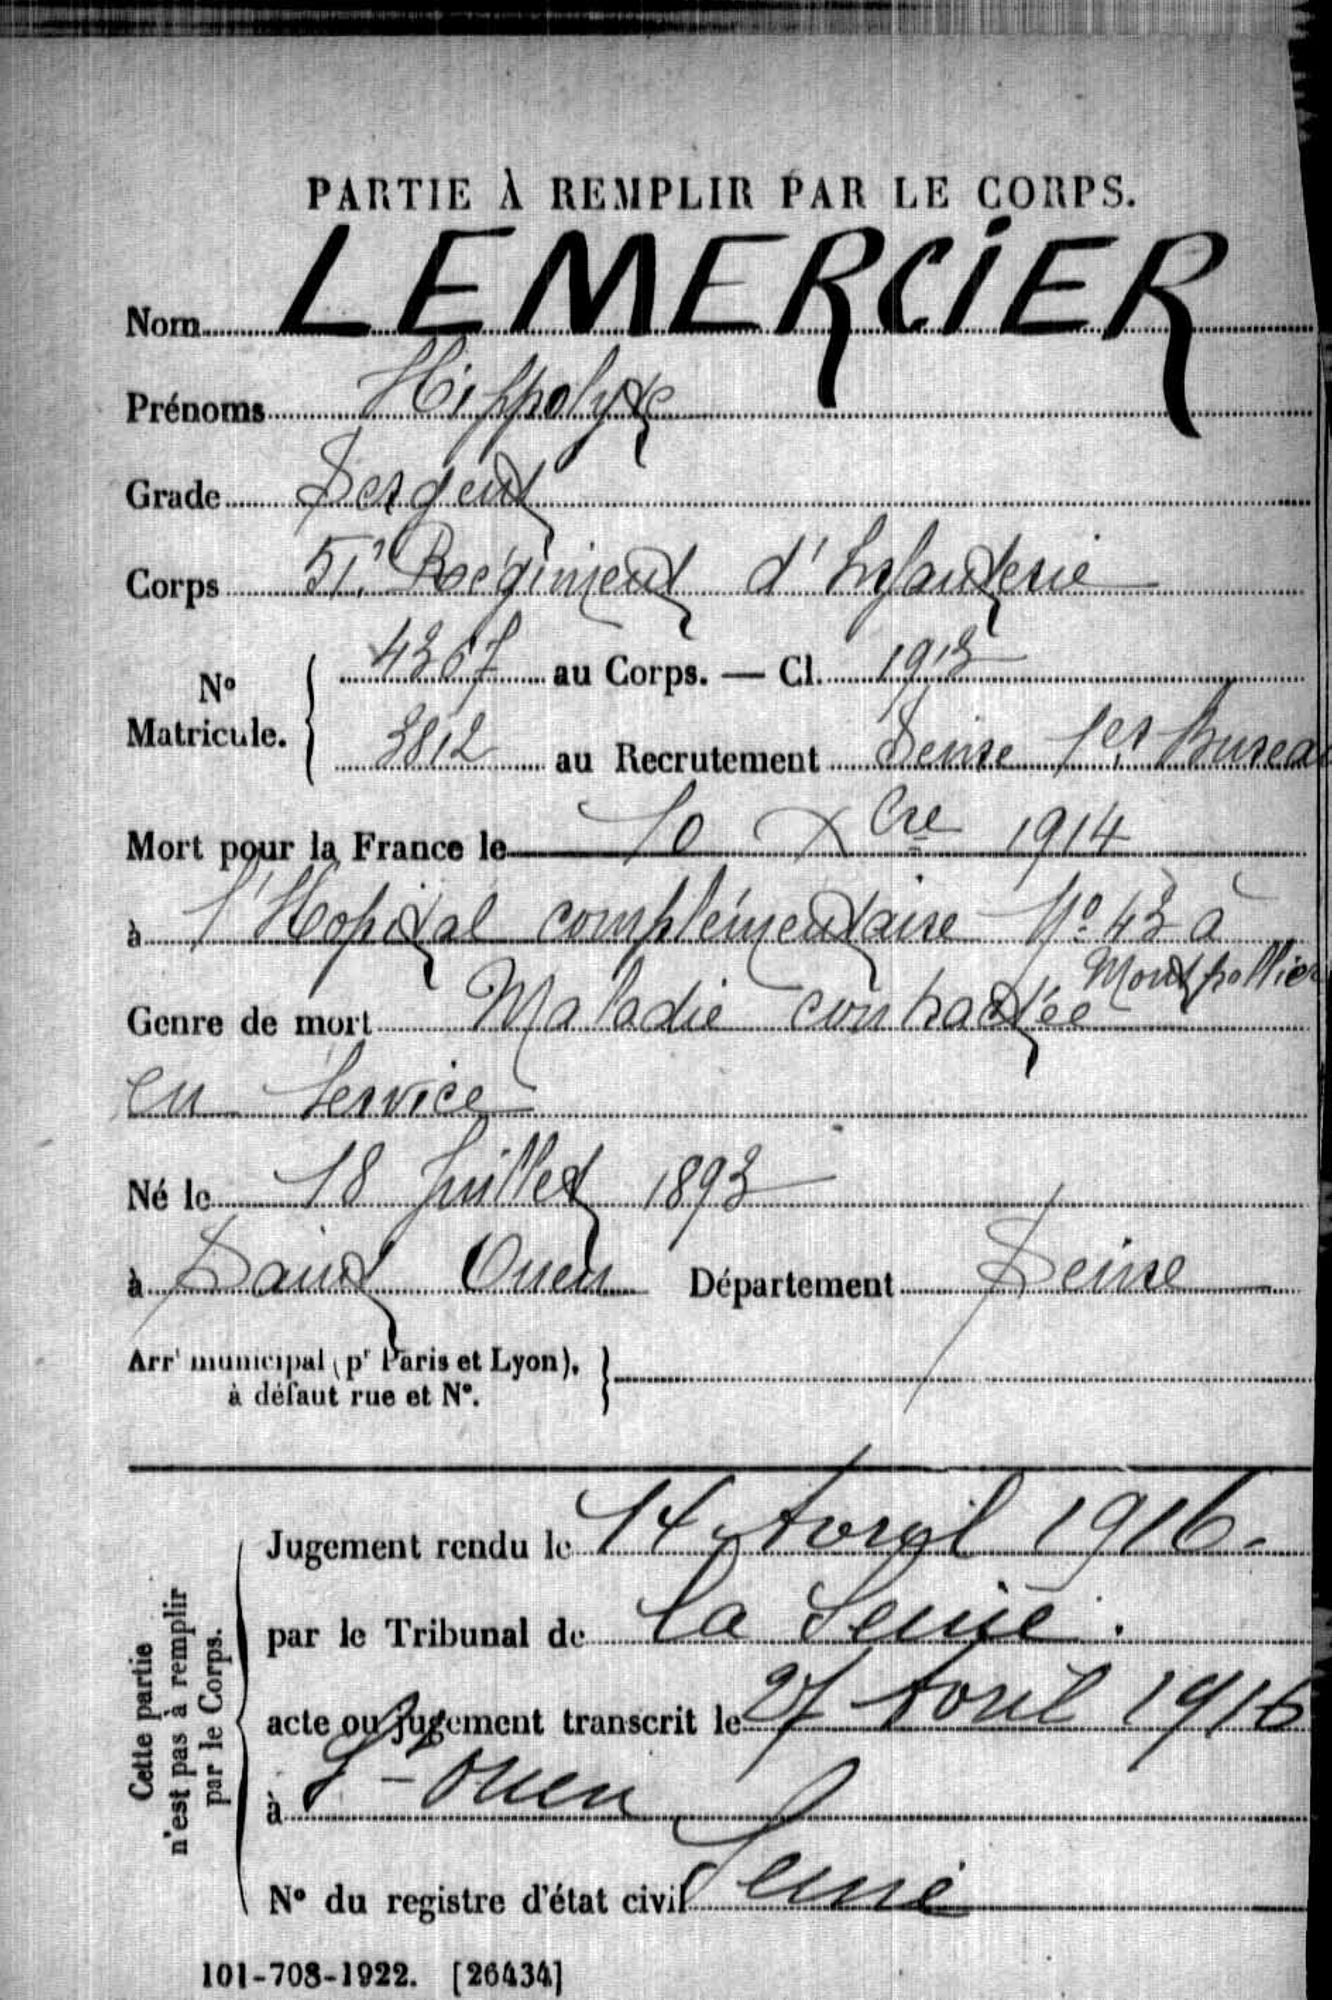 PARTIE À REMPLIR PAR LE CORPS.
Nom LEMERCIER
Prénoms Hippolyte
Grade Sergent
Corps 51e Régiment d'Infanterie
N° Matricule. 4367 au Corps. — Cl. 1913
3812 au Recrutement Seine 1er Bureau
Mort pour la France le 10 Xbre 1914
à l'Hopital complémentaire N° 43 à
Montpellier
Genre de mort Maladie contractée
en service
Né le 18 Juillet 1893
à Saint Ouen Département Seine
Arrt municipal (pr Paris et Lyon),
à défaut rue et N°.
Cette partie
n'est pas à remplir
par le Corps.
Jugement rendu le 14 Avril 1916.
par le Tribunal de la Seine.
acte ou jugement transcrit le 27 Avril 1916
à St-Ouen
N° du registre d'état civil Seine
101-708-1922. [26434]